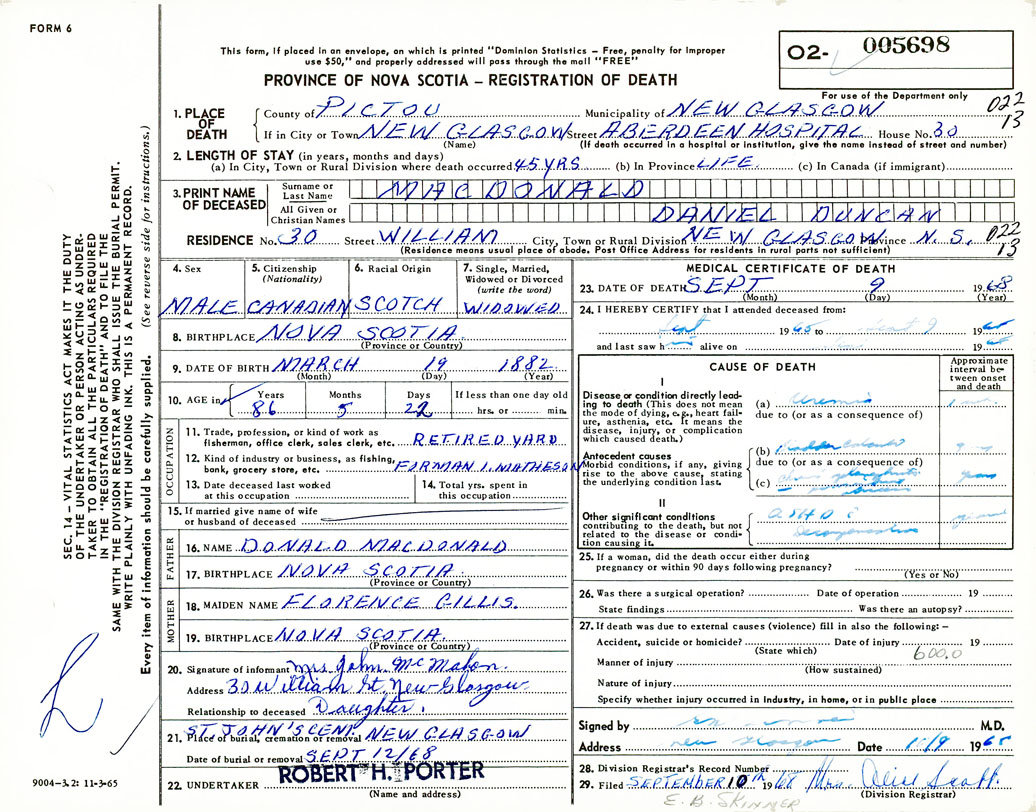 FORM 6
This form, if placed in an envelope, on which is printed "Dominion Statistics – Free, penalty for improper
use $50," and properly addressed will pass through the mail "FREE"
PROVINCE OF NOVA SCOTIA – REGISTRATION OF DEATH
02- 005698
For use of the Department only
022
13
1. PLACE OF DEATH
County of PICTOU Municipality of NEW GLASGOW
If in City or Town NEW GLASGOW Street ABERDEEN HOSPITAL House No. 30
(Name) (If death occurred in a hospital or institution, give the name instead of street and number)
2. LENGTH OF STAY (in years, months and days)
(a) In City, Town or Rural Division where death occurred 45 YRS (b) In Province LIFE (c) In Canada (if immigrant)
3. PRINT NAME OF DECEASED
Surname or Last Name MAC DONALD
All Given or Christian Names DANIEL DUNCAN
RESIDENCE No. 30 Street WILLIAM City, Town or Rural Division NEW GLASGOW Province N. S. 022
13
(Residence means usual place of abode. Post Office Address for residents in rural ports not sufficient)
4. Sex
MALE
5. Citizenship
(Nationality)
CANADIAN
6. Racial Origin
SCOTCH
7. Single, Married,
Widowed or Divorced
(write the word)
WIDOWED
8. BIRTHPLACE NOVA SCOTIA
(Province or Country)
9. DATE OF BIRTH MARCH 19 1882
(Month) (Day) (Year)
10. AGE in Years Months Days If less than one day old
86 5 22 hrs. or min.
OCCUPATION
11. Trade, profession, or kind of work as
fisherman, office clerk, sales clerk, etc. RETIRED YARD
12. Kind of industry or business, as fishing,
bank, grocery store, etc. FORMAN I. MATHESON
13. Date deceased last worked
at this occupation
14. Total yrs. spent in
this occupation
15. If married give name of wife
or husband of deceased
FATHER
16. NAME DONALD MACDONALD
17. BIRTHPLACE NOVA SCOTIA
(Province or Country)
MOTHER
18. MAIDEN NAME FLORENCE GILLIS.
19. BIRTHPLACE NOVA SCOTIA
(Province or Country)
20. Signature of informant Mrs. John McMahon.
Address 30 William St. New Glasgow.
Relationship to deceased Daughter.
21. Place of burial, cremation or removal ST. JOHN'S CEM NEW GLASGOW
Date of burial or removal SEPT 12/68
22. UNDERTAKER ROBERT H. PORTER
(Name and address)
MEDICAL CERTIFICATE OF DEATH
23. DATE OF DEATH SEPT 9 1968
(Month) (Day) (Year)
24. I HEREBY CERTIFY that I attended deceased from:
Sept 1965 to Sept 9 19
and last saw h alive on 19
CAUSE OF DEATH
Approximate
interval be-
tween onset
and death
I
Disease or condition directly lead-
ing to death (This does not mean
the mode of dying, e.g., heart fail-
ure, asthenia, etc. It means the
disease, injury, or complication
which caused death.)
(a) Uremia
due to (or as a consequence of)
Antecedent causes
Morbid conditions, if any, giving
rise to the above cause, stating
the underlying condition last.
(b)
due to (or as a consequence of)
(c)
II
Other significant conditions
contributing to the death, but not
related to the disease or condi-
tion causing it.
ASHD
25. If a woman, did the death occur either during
pregnancy or within 90 days following pregnancy?
(Yes or No)
26. Was there a surgical operation? Date of operation 19
State findings Was there an autopsy?
27. If death was due to external causes (violence) fill in also the following: –
Accident, suicide or homicide? Date of injury 19
(State which) 600.0
Manner of injury
(How sustained)
Nature of injury
Specify whether injury occurred in Industry, in home, or in public place
Signed by M.D.
Address New Glasgow Date 10/9 1968
28. Division Registrar's Record Number
29. Filed SEPTEMBER 10th 1968 Mrs. Olive Scott.
(Division Registrar)
E. B. SKINNER
SEC. 14 – VITAL STATISTICS ACT MAKES IT THE DUTY
OF THE UNDERTAKER OR PERSON ACTING AS UNDER-
TAKER TO OBTAIN ALL THE PARTICULARS REQUIRED
IN THE "REGISTRATION OF DEATH" AND TO FILE THE
SAME WITH THE DIVISION REGISTRAR WHO SHALL ISSUE THE BURIAL PERMIT.
WRITE PLAINLY WITH UNFADING INK. THIS IS A PERMANENT RECORD.
Every item of information should be carefully supplied. (See reverse side for instructions.)
9004-3.2: 11-3-65